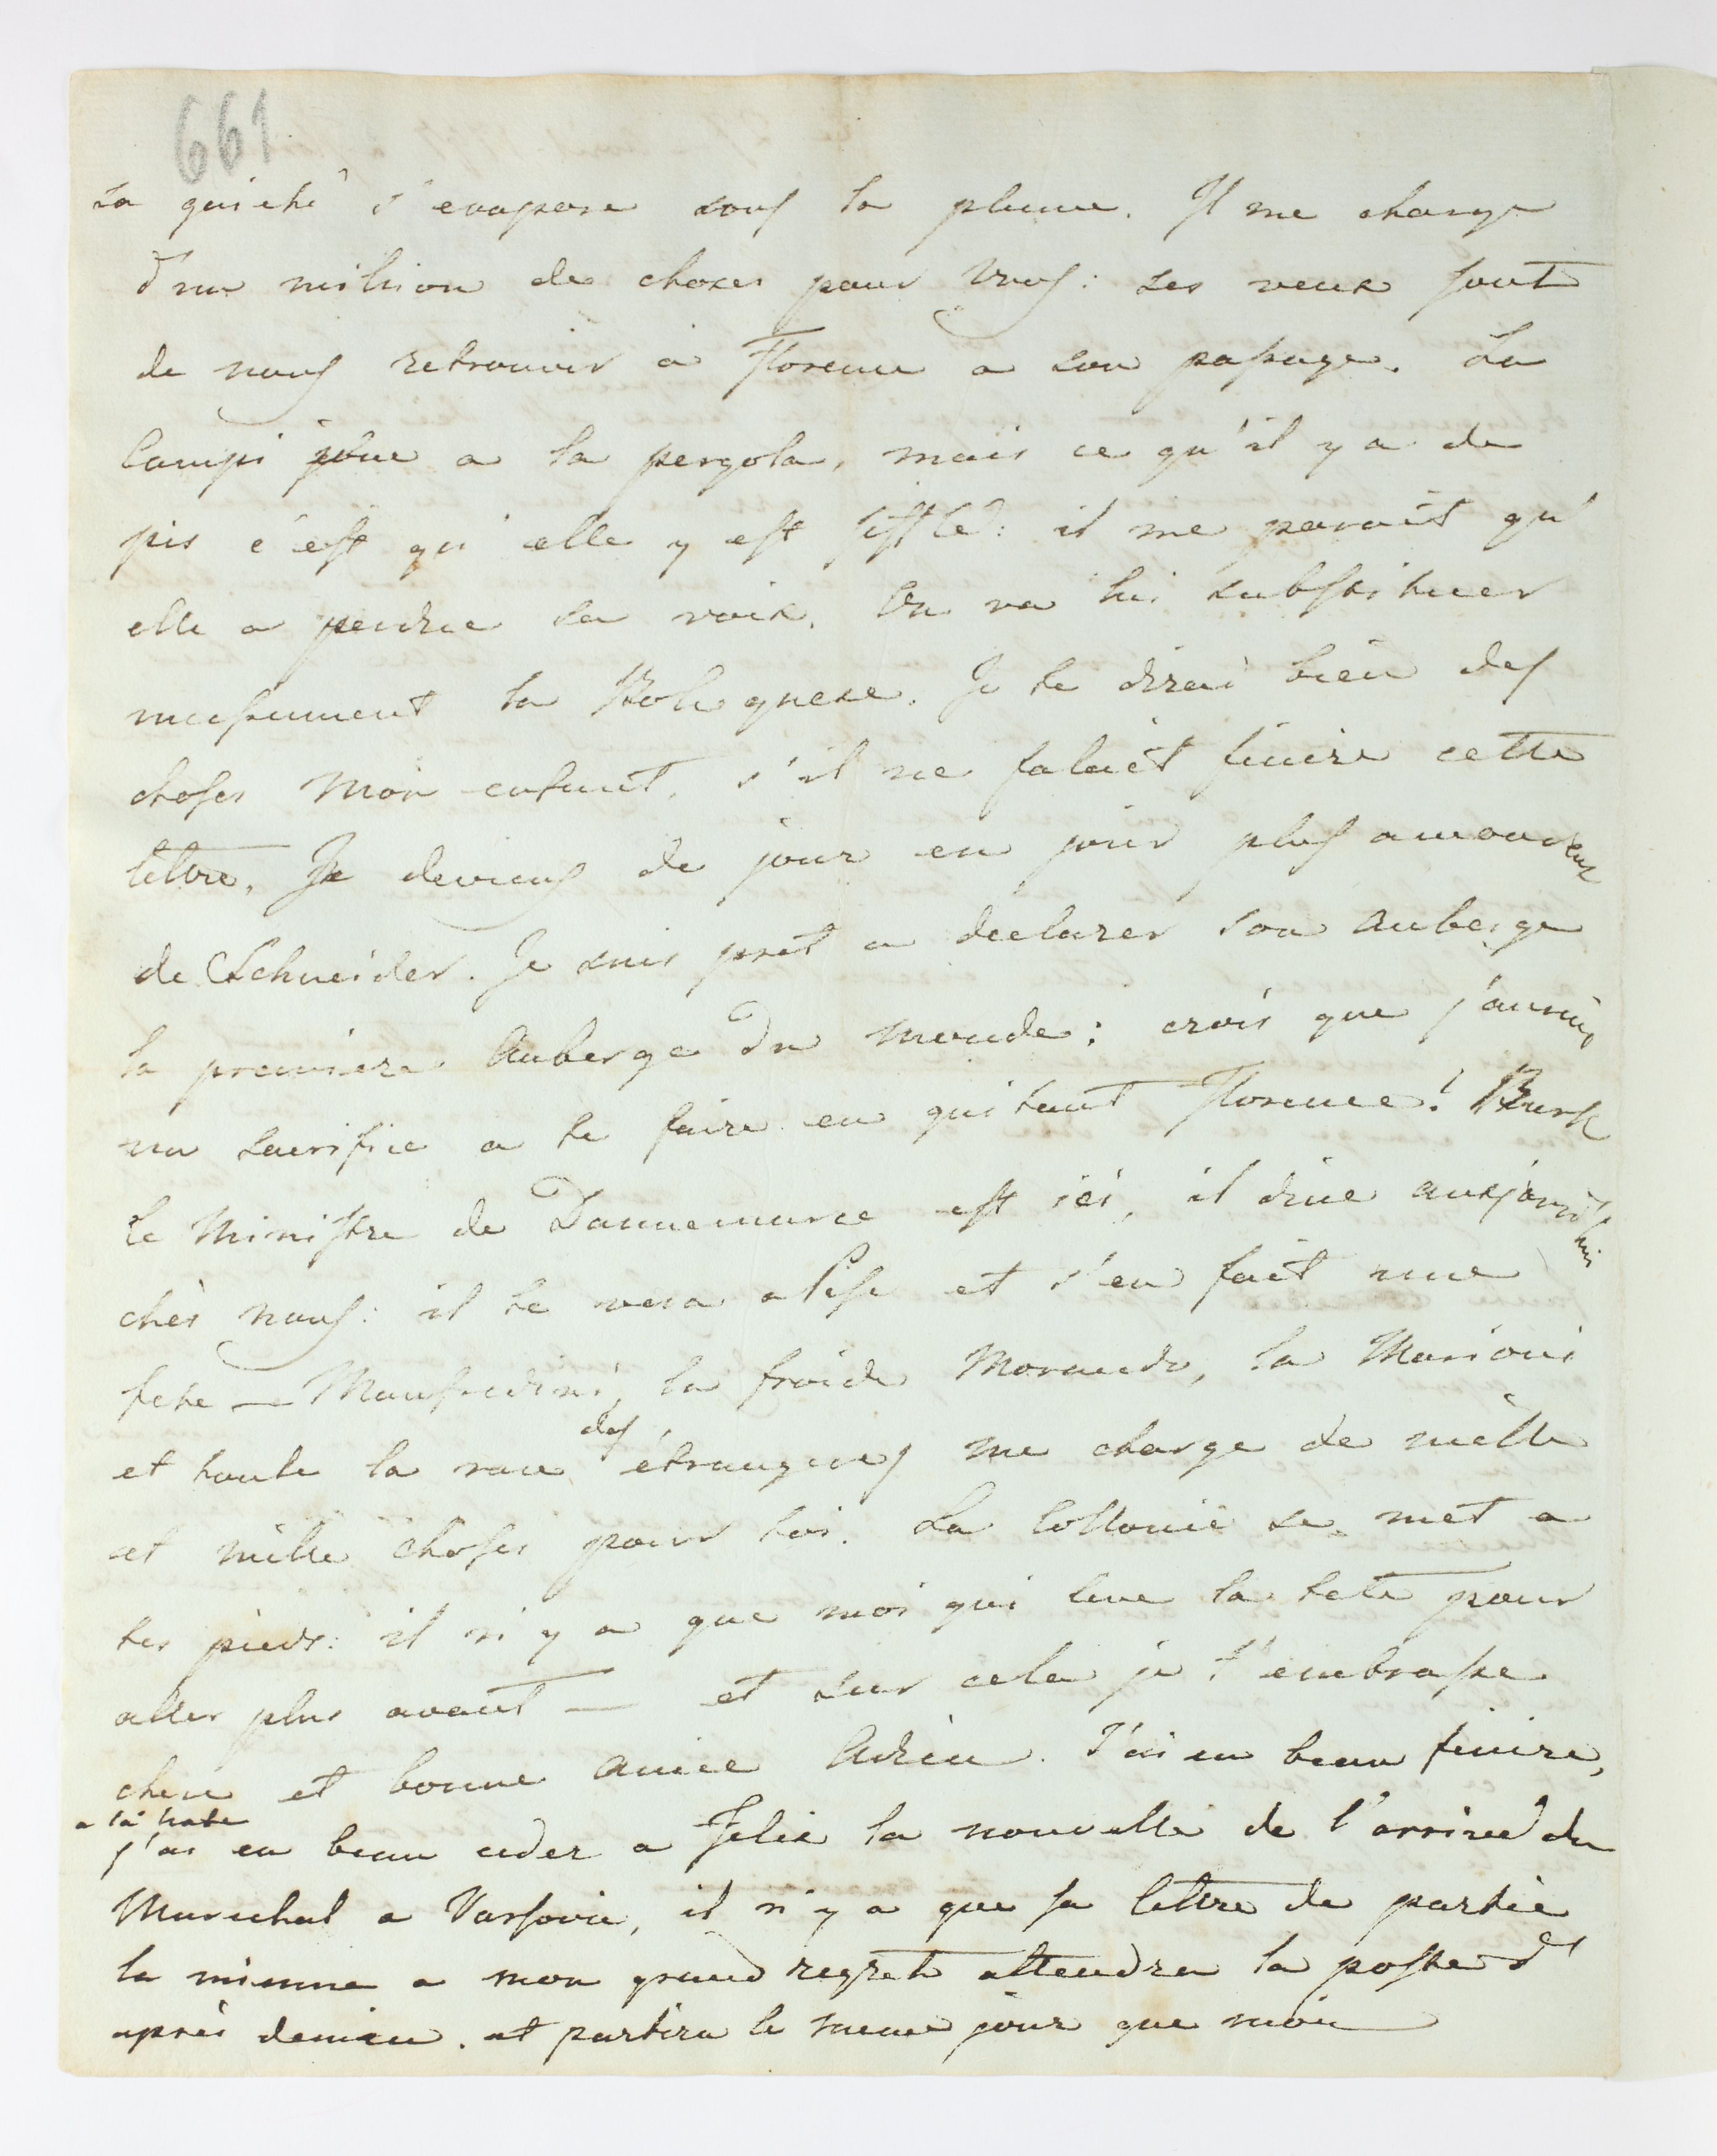 661
La gaieté s'evapore souf la plume. Il me charge
d'un milion de choses pour vouf: ses veux sont
de nouf retrouver a Florence a son passage. La
Campi joue a la pergola, mais ce qu'il y a de
pis c'est qu'elle y est siflé: il me parait qu'
elle a perdue sa voix. On va lui substituer
incessament la Bolognese. Je te dirai bien des
choses mon enfant, s'il ne falait finire cette
lettre. Je devienf de jour en jour pluf amoureux
de Schneider. Je suis pret a declarer son auberge
la premiere auberge du monde: crois que j'aurai
un sacrifice a te faire en quitant Florence!
le Ministre de Dannemarce est ici, il dine aujourd'hui
chés nouf: il te vera a Pise et s'en fait une
fete — Manfredini, la froide Morando, la Marioni
et toute la race des étrangeres me charge de mille
et mille choses pour toi. La Collonie se met a
tes pieds: il n'y a que moi qui leve la tete pour
aller plus avant — et sur cela je t'embrasse
chere et bonne amie Adieu. J'ai eu beau finire,
a la hate
j'ai eu beau ceder a Felix la nouvelle de l'arrivé du
Marechal a Varsovie, il n'y a que sa lettre de partie
la mienne a mon grand regret attendra la poste d'
après demain. et partira le meme jour que moi